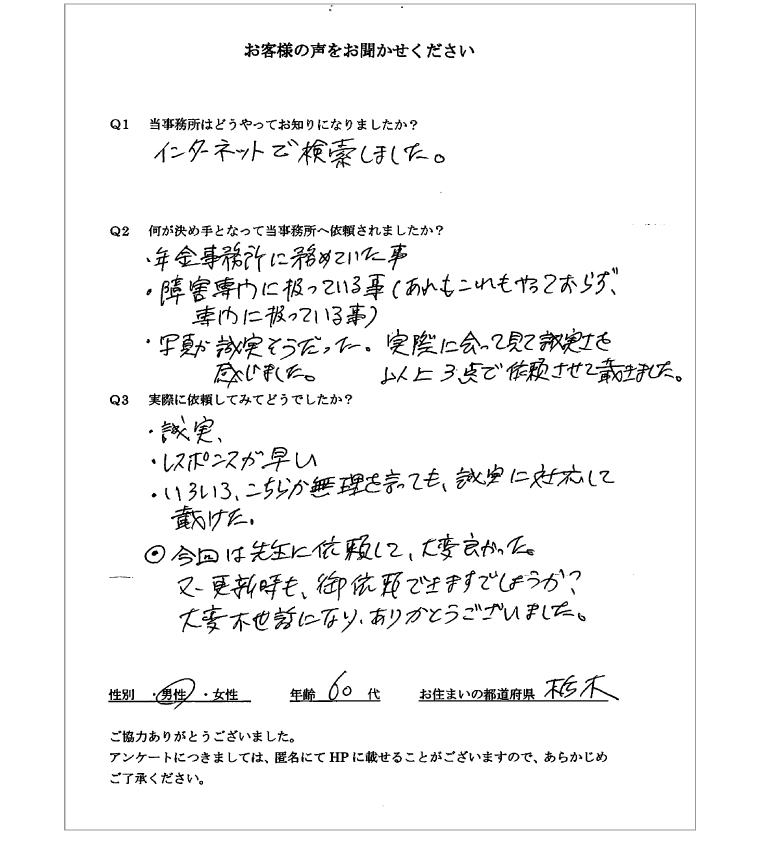 お客様の声をお聞かせください
Q1 当事務所はどうやってお知りになりましたか？
インターネットで検索しました。
Q2 何が決め手となって当事務所へ依頼されましたか？
・年金事務所に務めていた事
・障害専門に扱っている事(あれもこれもやっておらず、
専門に扱っている事)
・写真が誠実そうだった。実際に会って見て誠実さを
感じました。 以上3点で依頼させて戴きました。
Q3 実際に依頼してみてどうでしたか？
・誠実、
・レスポンスが早い
・いろいろ、こちらが無理を言っても、誠実に対応して
戴けた。
◎今回は先生に依頼して、大変良かった。
又、更新時も、御依頼できますでしょうか？
大変お世話になり、ありがとうございました。
性別 ・男性 ・女性 年齢 60 代 お住まいの都道府県 栃木
ご協力ありがとうございました。
アンケートにつきましては、匿名にて HP に載せることがございますので、あらかじめ
ご了承ください。